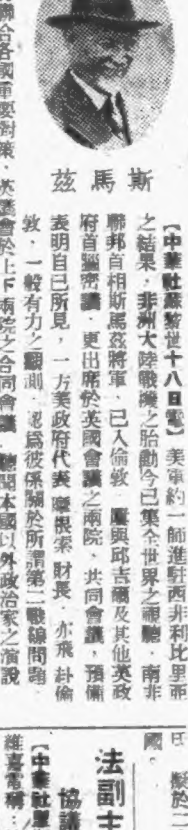 斯馬茲
【中華社蘇黎世十八日電】美軍約一師進駐西非利比里亞
之結果，非洲大陸戰機之胎動今已集全世界之視聽，南非
聯邦首相斯馬茲將軍，已入倫敦，屢與邱吉爾及其他英政
府首腦密議，更出席於英國會議之兩院，共同會議，預備
表明自已所見，一方美政府代表摩根索財長，亦飛赴倫
敦，一般有力之觀測，認爲彼係關於所謂第二戰線問題
聯合各國重要對策，英議會於上下兩院之合同會議，聽聞本國以外政治家之演說
氏
擬於二
國。
法副主
協議
【中華社
維嘉電稱：